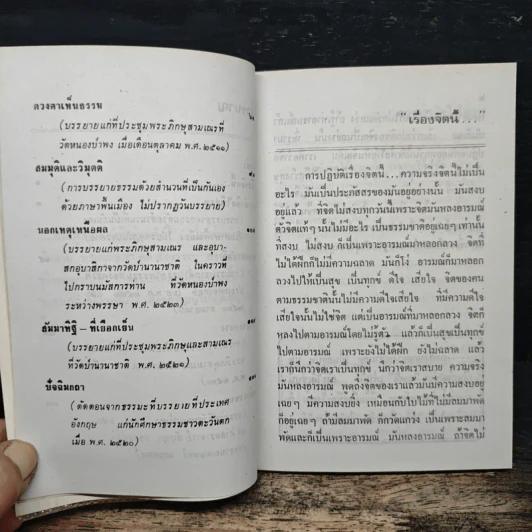 ดวงตาเห็นธรรม
(บรรยายแก่ที่ประชุมพระภิกษุสามเณรที่
วัดหนองป่าพง เมื่อเดือนตุลาคม พ.ศ.๒๕๑๑)
สมมุติและวิมุตติ
(การบรรยายธรรมด้วยสำนวนที่เป็นกันเอง
ด้วยภาษาพื้นเมือง ไม่ปรากฏวันบรรยาย)
นอกเหตุเหนือผล
(บรรยายแก่พระภิกษุสามเณร และอุบา-
สกอุบาสิกาจากวัดป่านานาชาติ ในคราวที่
ไปกราบนมัสการท่าน ที่วัดหนองป่าพง
ระหว่างพรรษา พ.ศ. ๒๕๒๑)
สัมมาทิฐิ – ที่เยือกเย็น
(บรรยายแก่ที่ประชุมพระภิกษุและสามเณร
ที่วัดป่านานาชาติ พ.ศ. ๒๕๒๑)
ปัจฉิมกถา
(ตัดตอนจากธรรมะที่บรรยายที่ประเทศ
อังกฤษ แก่นักศึกษาธรรมชาวตะวันตก
เมื่อ พ.ศ. ๒๕๒๐)
"เรื่องจิตนี้..."
การปฏิบัติเรื่องจิตนี้...ความจริงจิตนี้ไม่เป็น
อะไร มันเป็นประภัสสรของมันอยู่อย่างนั้น มันสงบ
อยู่แล้ว ที่จิตไม่สงบทุกวันนี้เพราะจิตมันหลงอารมณ์
ตัวจิตแท้ๆ นั้นไม่มีอะไร เป็นธรรมชาติอยู่เฉยๆ เท่านั้น
ที่สงบ ไม่สงบ ก็เป็นเพราะอารมณ์มาหลอกลวง จิตที่
ไม่ได้ฝึกก็ไม่มีความฉลาด มันก็โง่ อารมณ์ก็มาหลอก
ลวงไปให้เป็นสุข เป็นทุกข์ ดีใจ เสียใจ จิตของคน
ตามธรรมชาตินั้นไม่มีความดีใจเสียใจ ที่มีความดีใจ
เสียใจนั้นไม่ใช่จิต แต่เป็นอารมณ์ที่มาหลอกลวง จิตก็
หลงไปตามอารมณ์โดยไม่รู้ตัว แล้วก็เป็นสุขเป็นทุกข์
ไปตามอารมณ์ เพราะยังไม่ได้ฝึก ยังไม่ฉลาด แล้ว
เราก็นึกว่าจิตเราเป็นทุกข์ นึกว่าจิตเราสบาย ความจริง
มันหลงอารมณ์ พูดถึงจิตของเราแล้วมันมีความสงบอยู่
เฉยๆ มีความสงบยิ่ง เหมือนกับใบไม้ที่ไม่มีลมมาพัด
ก็อยู่เฉยๆ ถ้ามีลมมาพัด ก็กวัดแกว่ง เป็นเพราะลมมา
พัดและก็เป็นเพราะอารมณ์ มันหลงอารมณ์ ถ้าจิตไม่